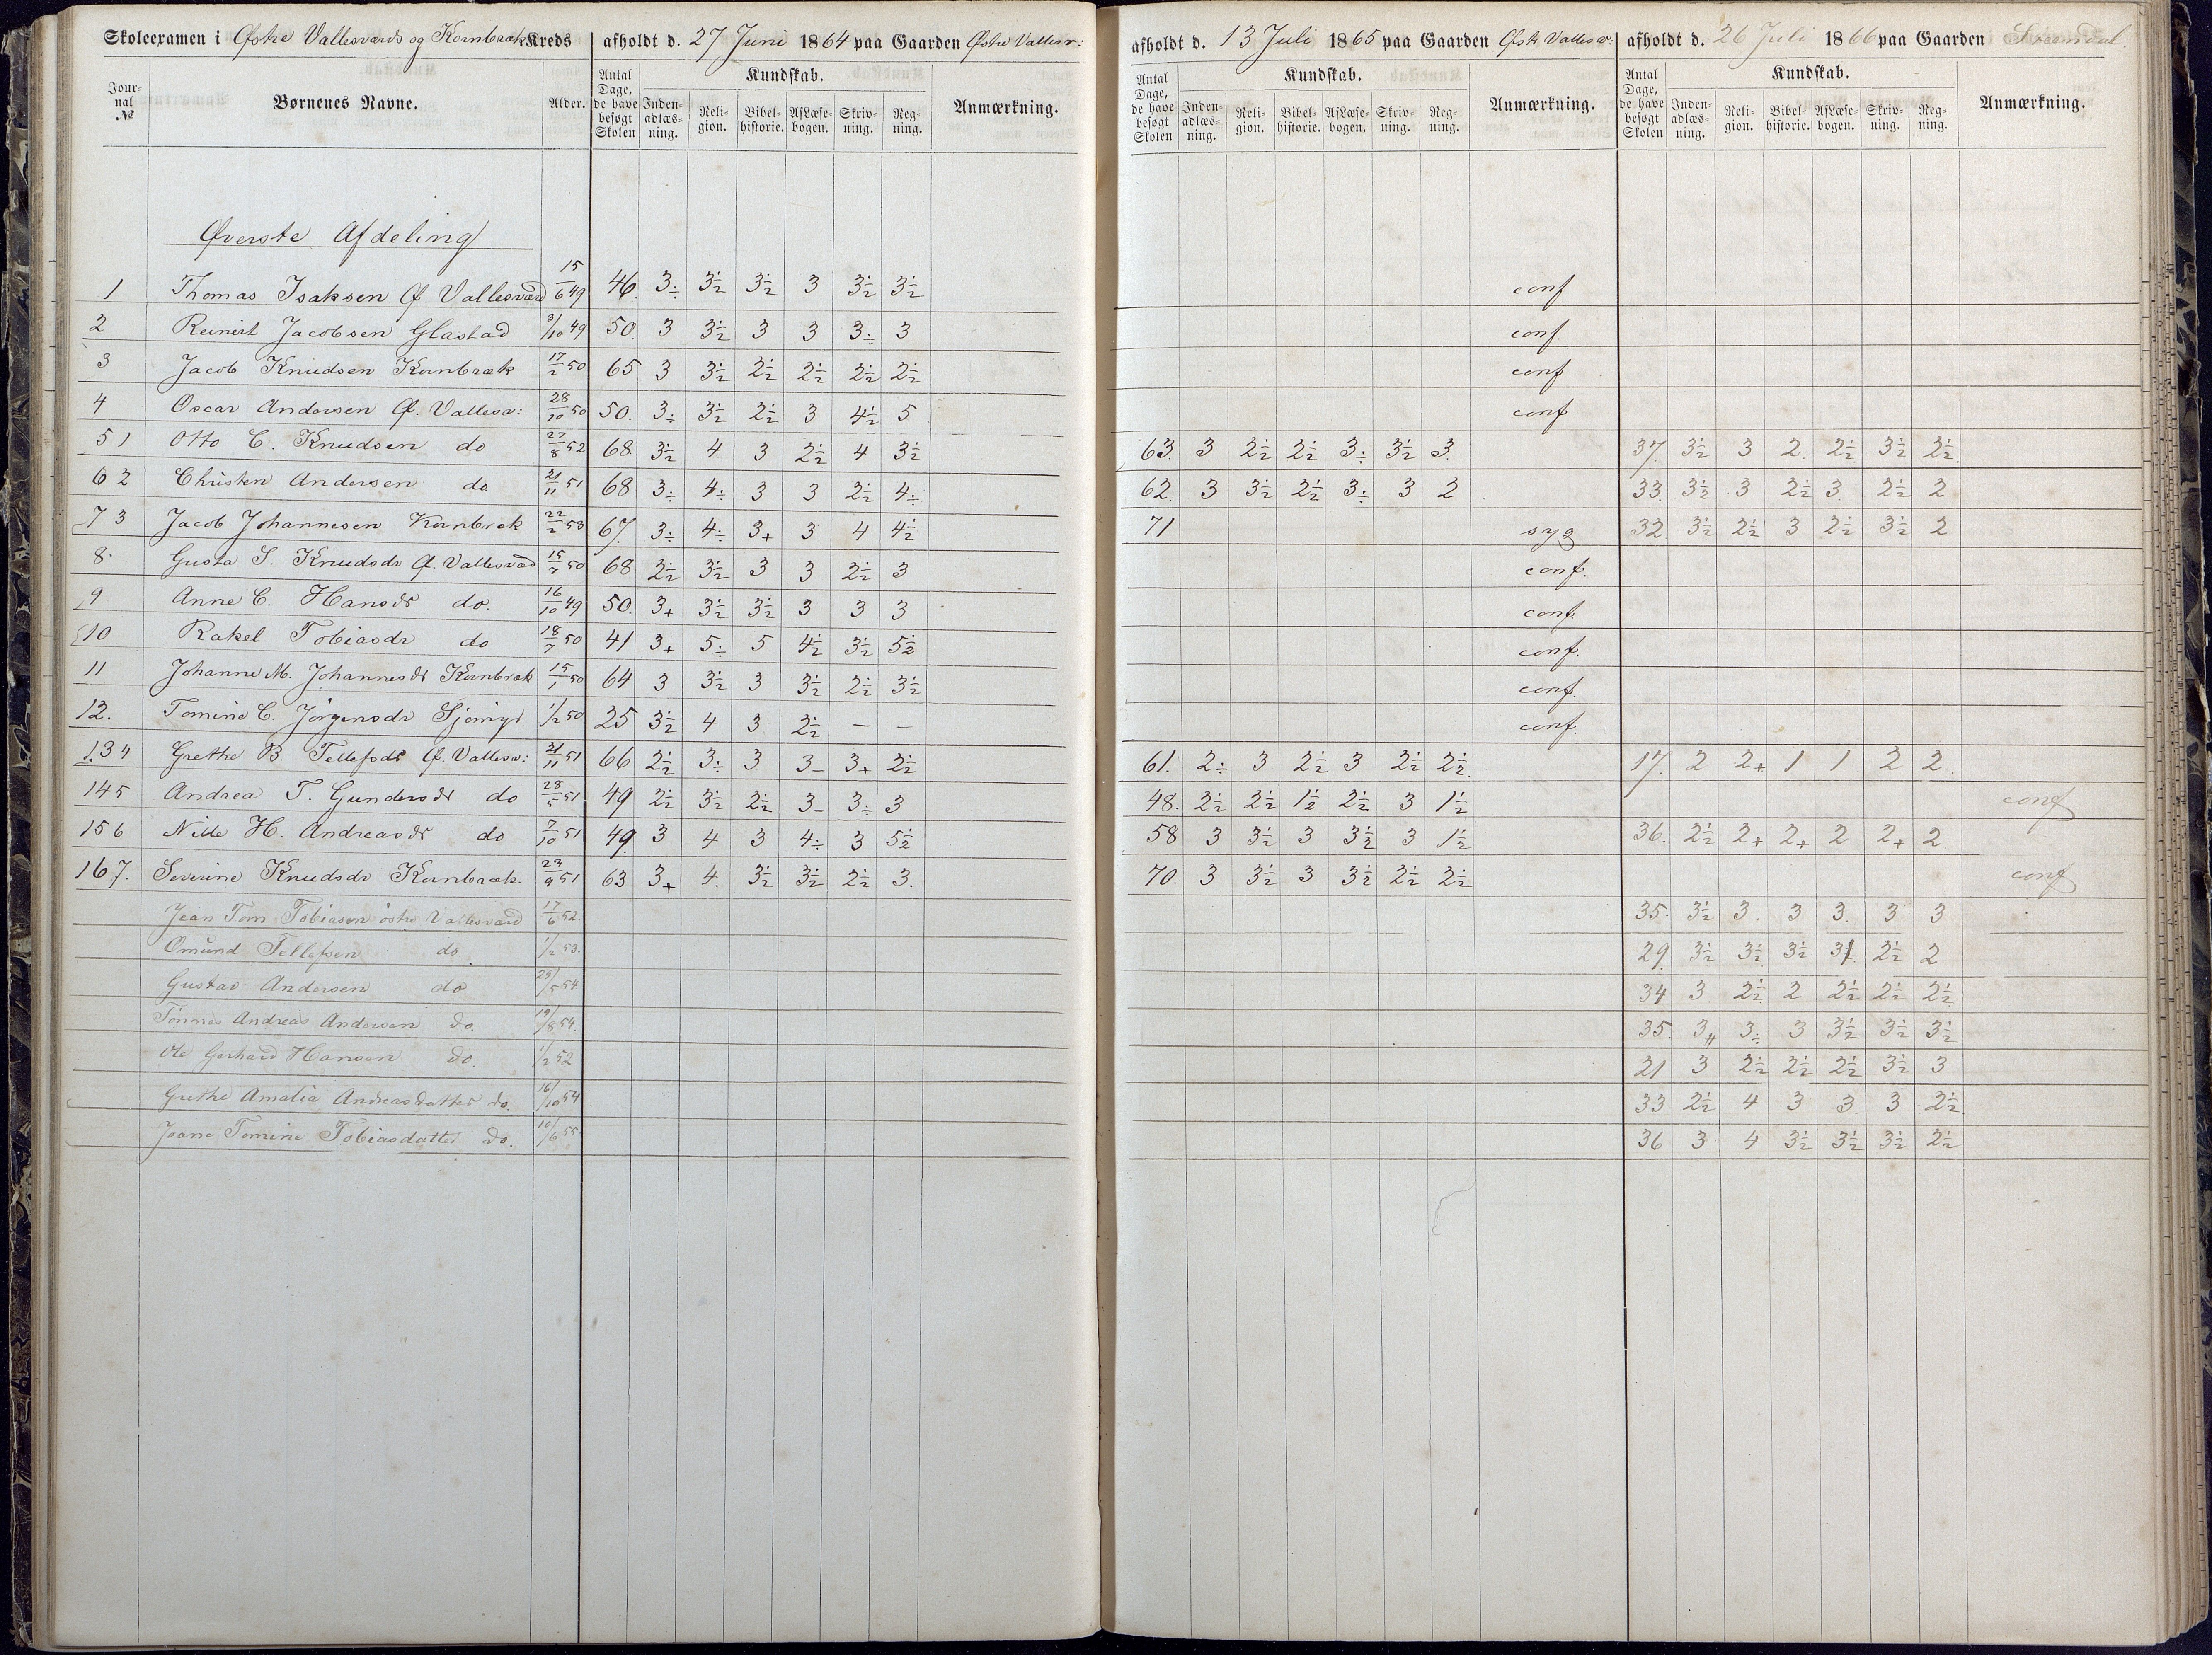 Skoleexamen i Østre Vallesværds og Kornbræk Kreds afholdt d. 27 Juni 1864 paa Gaarden Østre Vallesv: afholdt d. 13 Juli 1865 paa Gaarden Østr Vallesv: afholdt d. 26 Juli 1866 paa Gaarden
Journal № Børnenes Navne. Alder. Antal Dage, de have besøgt Skolen Kundskab. Indenadlæsning. Religion. Bibelhistorie. Af Læsebogen. Skrivning. Regning. Anmærkning. Antal Dage, de have besøgt Skolen Kundskab. Indenadlæsning. Religion. Bibelhistorie. Af Læsebogen. Skrivning. Regning. Anmærkning. Antal Dage, de have besøgt Skolen Kundskab. Indenadlæsning. Religion. Bibelhistorie. Af Læsebogen. Skrivning. Regning. Anmærkning.
Øverste Afdeling
1 Thomas Isaksen Ø. Vallesværd 15/6 49 46. 3÷ 3½ 3½ 3 3½ 3½ conf
2 Reinert Jacobsen Glastad 3/10 49 50. 3 3½ 3 3 3÷ 3 conf.
3 Jacob Knudsen Kornbræk 17/2 50 65 3 3½ 2½ 2½ 2½ 2½ conf
4 Oscar Andersen Ø. Vallesv: 28/10 50 50. 3÷ 3½ 2½ 3 4½ 5 conf
5 1 Otto C. Knudsen do 27/8 52 68. 3½ 4 3 2½ 4 3½ 63. 3 2½ 2½ 3÷ 3½ 3. 37. 3½ 3 2. 2½ 3½ 2½
6 2 Christen Andersen do 21/11 51 68 3÷ 4÷ 3 3 2½ 4÷ 62. 3 3½ 2½ 3÷ 3 2 33. 3½ 3 2½ 3. 2½ 2
7 3 Jacob Johannesen Kornbræk 22/2 53 67. 3÷ 4÷ 3+ 3 4 4½ 71 syg 32. 3½ 2½ 3 2½ 3½ 2
8. Gusta S. Knudsdr Ø. Vallesværd 15/7 50 68 2½ 3½ 3 3 2½ 3 conf.
9 Anne C. Hansdr do. 16/10 49 50. 3+ 3½ 3½ 3 3 3 conf.
10 Rakel Tobiasdr do 18/7 50 41 3+ 5÷ 5 4½ 3½ 5½ conf.
11 Johanne M. Johannesdr Kornbræk 15/1 50 64 3 3½ 3 3½ 2½ 3½ conf.
12. Tomine C. Jörgensdr 1/2 50 25 3½ 4 3 2½ — — conf.
13 4 Grethe B. Tellefsdr Ø. Vallesv: 21/11 51 66 2½ 3÷ 3 3- 3+ 2½ 61. 2÷ 3 2½ 3 2½ 2½ 17. 2 2+ 1 1 2 2.
14 5 Andrea T. Gundersdr do 28/5 51 49 2½ 3½ 2½ 3- 3÷ 3 48. 2½ 2½ 1½ 2½ 3 1½ conf
15 6 Nille H. Andreasdr do 7/10 51 49. 3 4 3 4÷ 3 5½ 58 3 3½ 3 3½ 3 1½ 36. 2½ 2+ 2+ 2 2+ 2
16 7. Severine Knudsdr Kornbræk. 23/9 51 63 3+ 4. 3½ 3½ 2½ 3. 70. 3 3½ 3 3½ 2½ 2½ conf
Jean Tom Tobiasen östre Vallesværd 17/6 52. 35. 3½ 3. 3 3. 3 3
Omund Tellefsen do. 1/2 53. 29. 3½ 3½ 3½ 2½ 2
Gustav Andersen do. 29/5 54 34 3. 2½ 2 2½ 2½ 2½
Tönnes Andreas Andersen do. 19/8 54. 35. 3 3÷ 3 3½ 3½ 3½
Ole Gerhard Hansen do. 1/2 52 21 3 2½ 2½ 2½ 3½ 3
Grethe Amalia Andreasdatter do. 16/10 54 33 2½ 4 3 3. 3 2½
Joane Tomine Tobiasdatter do. 10/6 55 36 3 4 3½ 3½ 3½ 2½